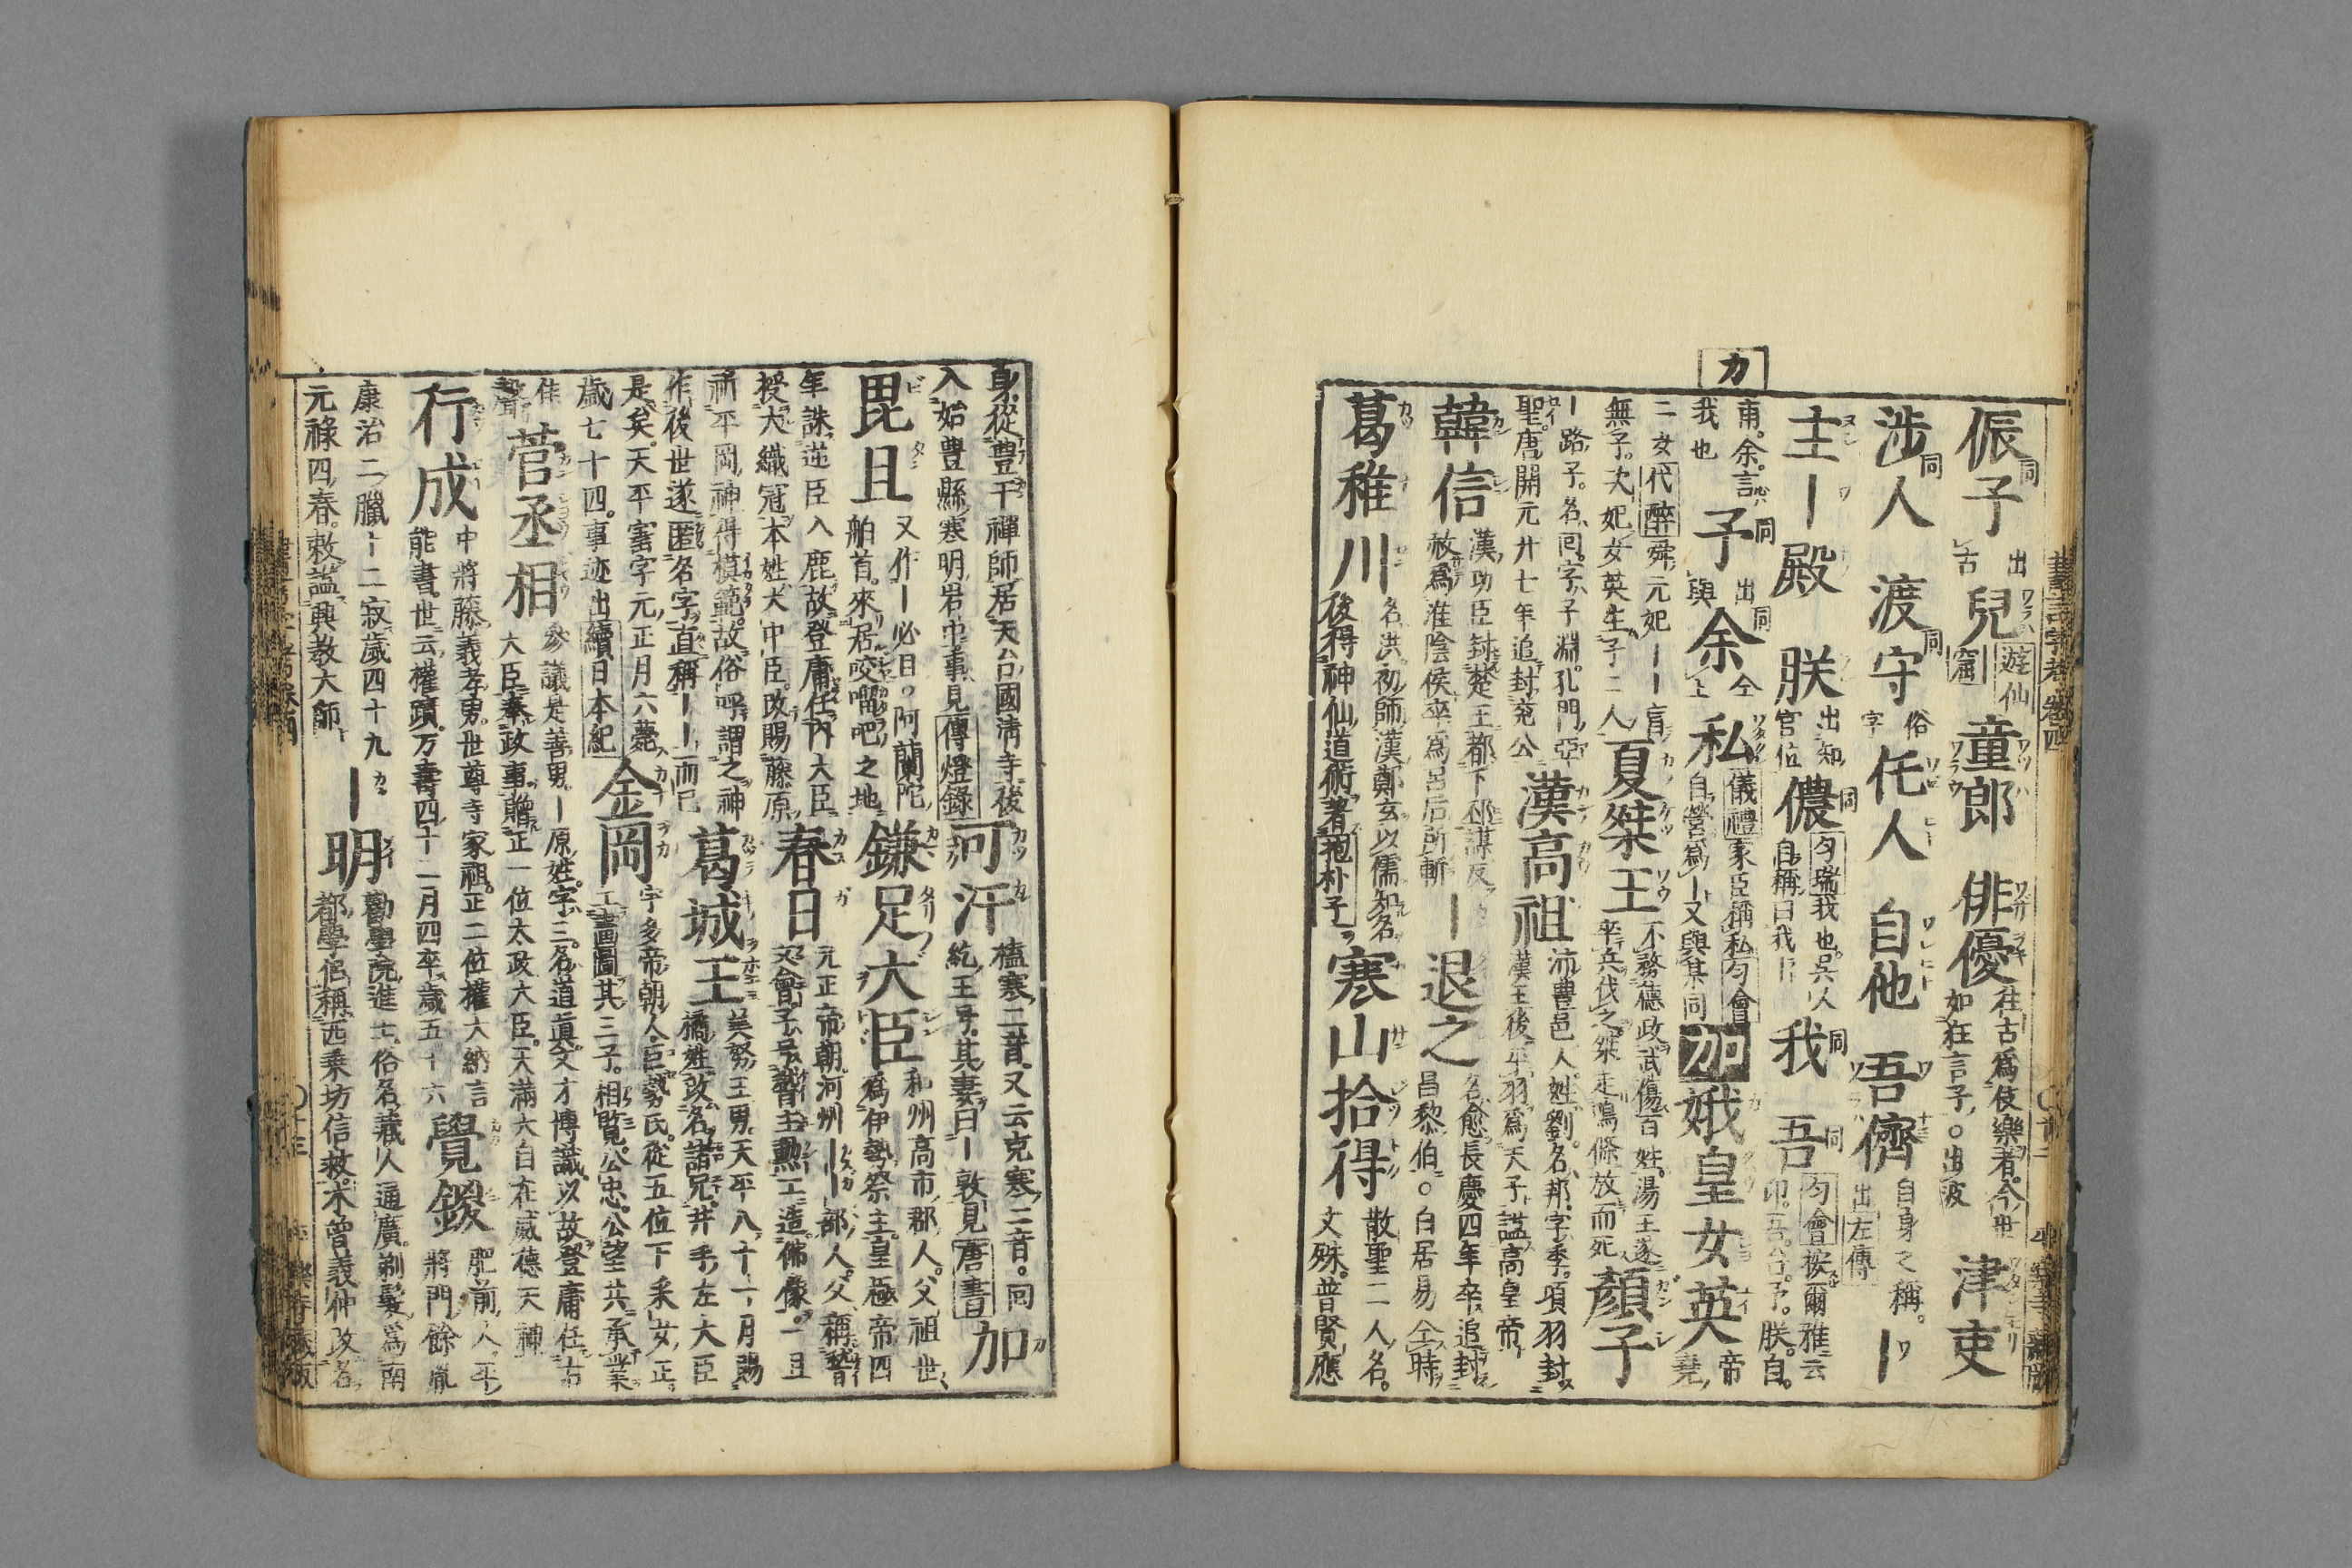 侲子 同 出古 兒 遊仙窟 童郎 俳優 往古爲伎樂者今世如狂言子○出波 津吏
涉人 同 渡守 同 俗字 仛人 自他 吾儕 自身之稱。出左傳 ー
主ー殿 朕 出知官位 儂 同 匀瑞我也。吳人自稱曰我ー 我 同 吾 同 匀會按爾雅云卬。吾。台。予。朕。自。
甫。余。言我也 予 同 出與 余 同 仝上 私 儀禮家臣稱私匀會自營爲ー又與某同 加 娥皇女英 帝堯
二女代醉舜元妃ーー盲無子。次妃女英生子二人 夏桀王 不務德政武傷百姓湯王遂卒兵伐之桀走鳴條放而死 顏子
ー路子。名回。字子淵。孔門亞聖。唐開元廿七年追封兗公 漢高祖 沛豊邑人。姓劉。名邦。字季。項羽封漢王後平羽爲天子諡高皇帝
韓信 漢功臣封楚王都下邳謀反赦爲淮陰侯卒爲呂后所斬 ー退之 名愈長慶四年卒追封昌黎伯○白居易仝時
葛稚川 名洪初師漢鄭玄以儒知名後得神仙道術著抱朴子 寒山拾得 散聖二人名。文殊。普賢應
身從豊干禪師居天台國清寺後入始豊縣寒明岩中事見傳燈錄 可汗 榼寒二音又云克寒二音。囘紇王号其妻曰ー敦見唐書 加
毘且 又作ー必且。阿蘭陀舶首。來居咬𠺕吧之地 鎌足大臣 和州高市郡人。父祖世爲伊勢祭主。皇極帝四
年誅逆臣入鹿故登庸任內大臣授大織冠本姓大中臣。改賜藤原 春日 元正帝朝河州ーー部人。父稱稽文會子号稽主勳工造佛像。一旦
祈平岡神得模範。故俗呼謂之神作後世遂匿名字直稱ーー而已 葛城王 美努王男天平八十一月賜橘姓改名諸兄井手左大臣
是矣。天平宝字元正月六薨歲七十四。事迹出續日本紀 金岡 宇多帝朝人巨勢氏。從五位下釆女正。工畫圖其三子。相覽公忠。公望共承業
佳聲 菅丞相 參議是善男。ー原姓。字三。名道眞。文才博識以故登庸任右大臣奉政事贈正一位太政大臣。天滿大自在威德天神
行成 中將藤義孝男。世尊寺家祖。正二位權大納言能書世云權蹟万壽四十二月四卒歲五十六 覺鑁 肥前人平將門餘胤
康治二臘十二寂歲四十九元祿四春。敕諡興敎大師 ー明 勸學院進士。俗名藏人通廣剃髮爲南都學侶稱西乘坊信救。木曽義仲改名